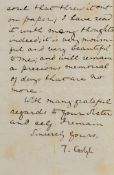 soul that threw it out
on paper; I have read
it with many thoughts
indeed, it is very mourn-
ful and very beautiful
to me; and will remain
a precious memorial
of days that are no
more.
With many grateful
regards to your Sister
and self I remain
Sincerely Yours,
T. Carlyle